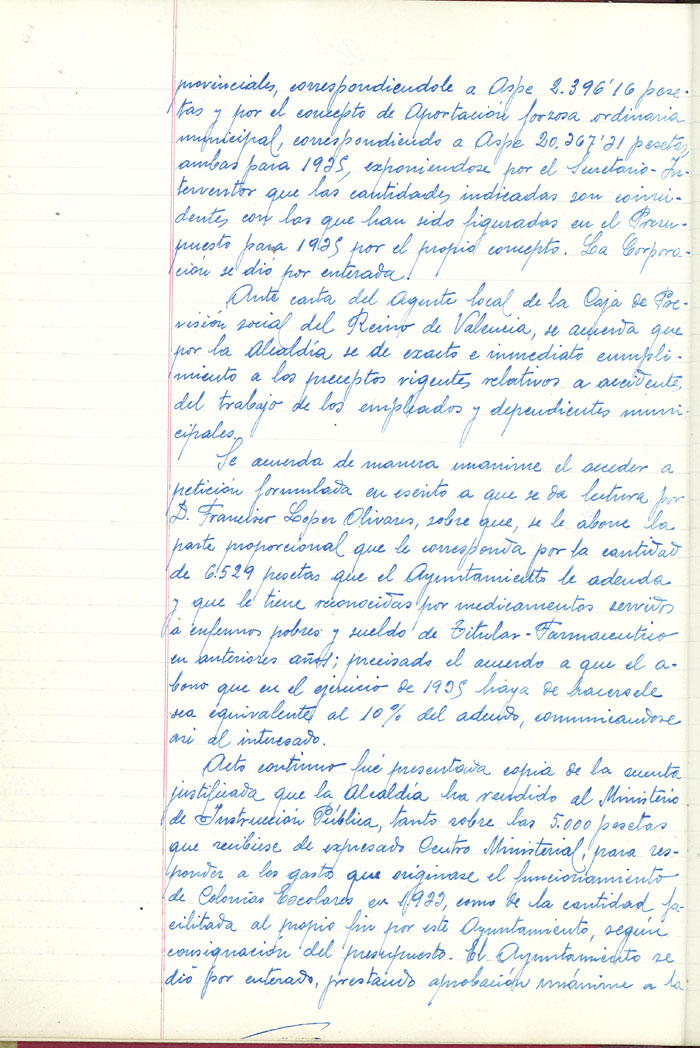 provinciales, correspondiendole a Aspe 2.396'16 pese-
tas y por el concepto de Aportación forzosa ordinaria
municipal, correspondiendo a Aspe 20.367'31 pesetas,
ambas para 1935, exponiendose por el Secretario-In-
terventor que las cantidades indicadas son coinci-
dentes con las que han sido figuradas en el Presu-
puesto para 1935 por el propio concepto. La Corpora-
ción se dió por enterada.
Ante carta del Agente local de la Caja de Pre-
visión social del Reino de Valencia, se acuerda que
por la Alcaldía se de exacto e inmediato cumpli-
miento a los preceptos vigentes relativos a accidentes
del trabajo de los empleados y dependientes muni-
cipales.
Se acuerda de manera unanime el acceder a
petición formulada en escrito a que se da lectura por
D. Francisco Lopez Olivares, sobre que, se le abone la
parte proporcional que le corresponda por la cantidad
de 6.529 pesetas que el Ayuntamiento le adeuda
y que le tiene reconocidas por medicamentos servidos
a enfermos pobres y sueldo de Titular-Farmaceutico
en anteriores años; precisado el acuerdo a que el a-
bono que en el ejercicio de 1935 haya de hacersele
sea equivalente al 10% del adeudo, comunicandose
asi al interesado.
Acto continuo fué presentada copia de la cuenta
justificada que la Alcaldía ha rendido al Ministerio
de Instrucción Pública, tanto sobre las 5.000 pesetas
que recibiese de expresado Centro Ministerial, para res-
ponder a los gastos que originase el funcionamiento
de Colonias Escolares en 1933, como de la cantidad fa-
cilitada al propio fin por este Ayuntamiento, según
consignación del presupuesto. El Ayuntamiento se
dió por enterado, prestando aprobación unánime a la